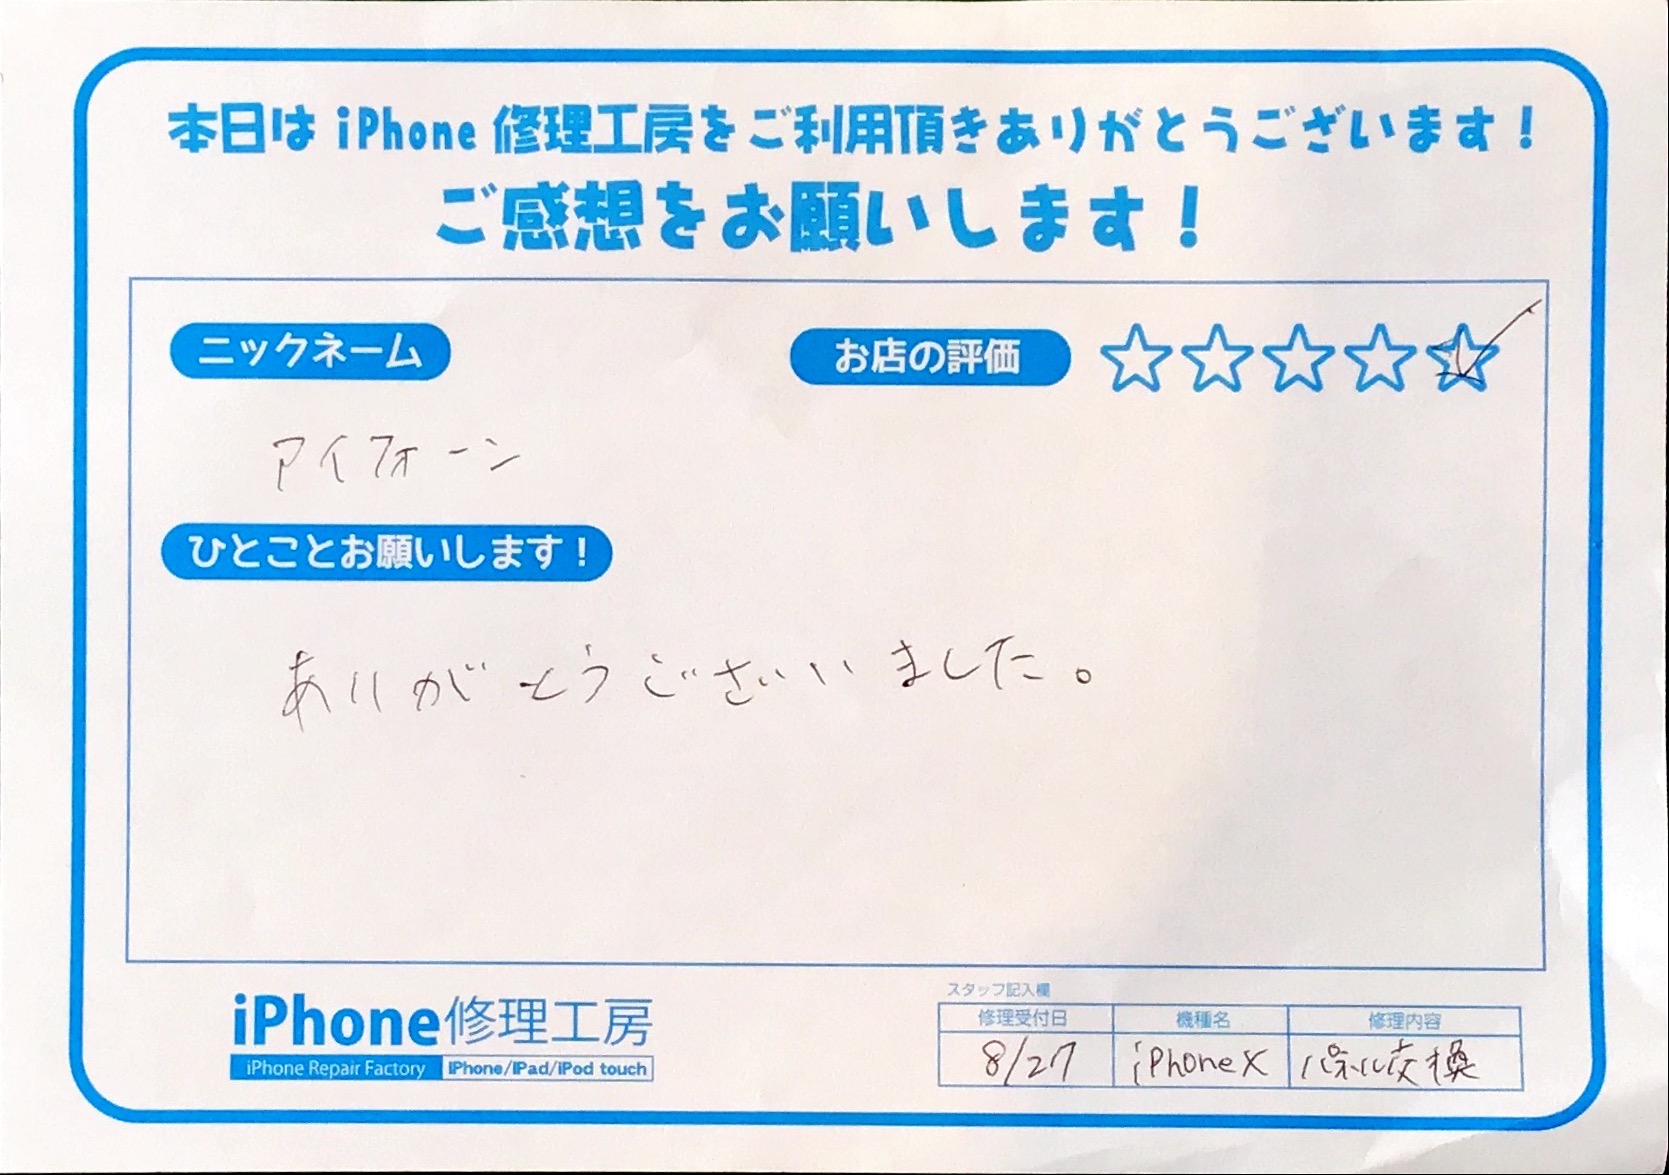 本日は iPhone 修理工房をご利用頂きありがとうございます！
ご感想をお願いします！
ニックネーム
お店の評価 ☆☆☆☆☆
アイフォーン
ひとことお願いします！
ありがとうございいました。
iPhone修理工房
iPhone Repair Factory iPhone/iPad/iPod touch
スタッフ記入欄
修理受付日 機種名 修理内容
8/27 iPhoneX パネル交換